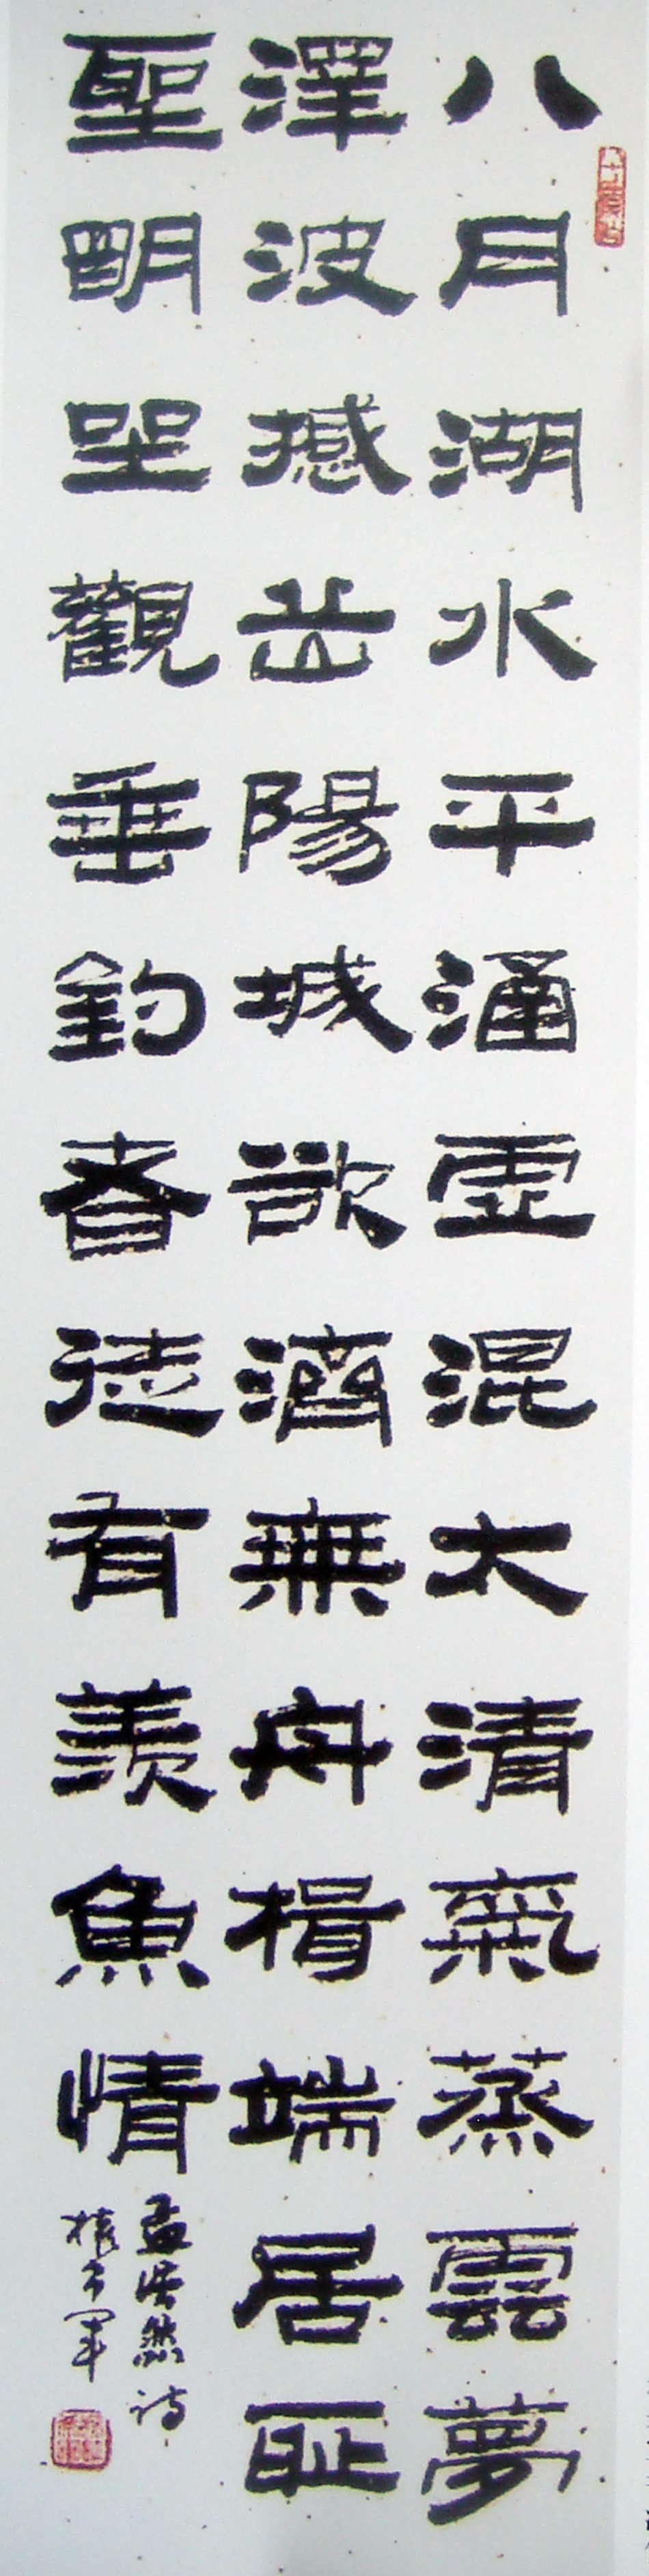 八月湖水平涵虛混太清氣蒸雲夢
澤波撼岳陽城欲濟無舟楫端居恥
聖明坐觀垂釣者徒有羨魚情
孟浩然诗